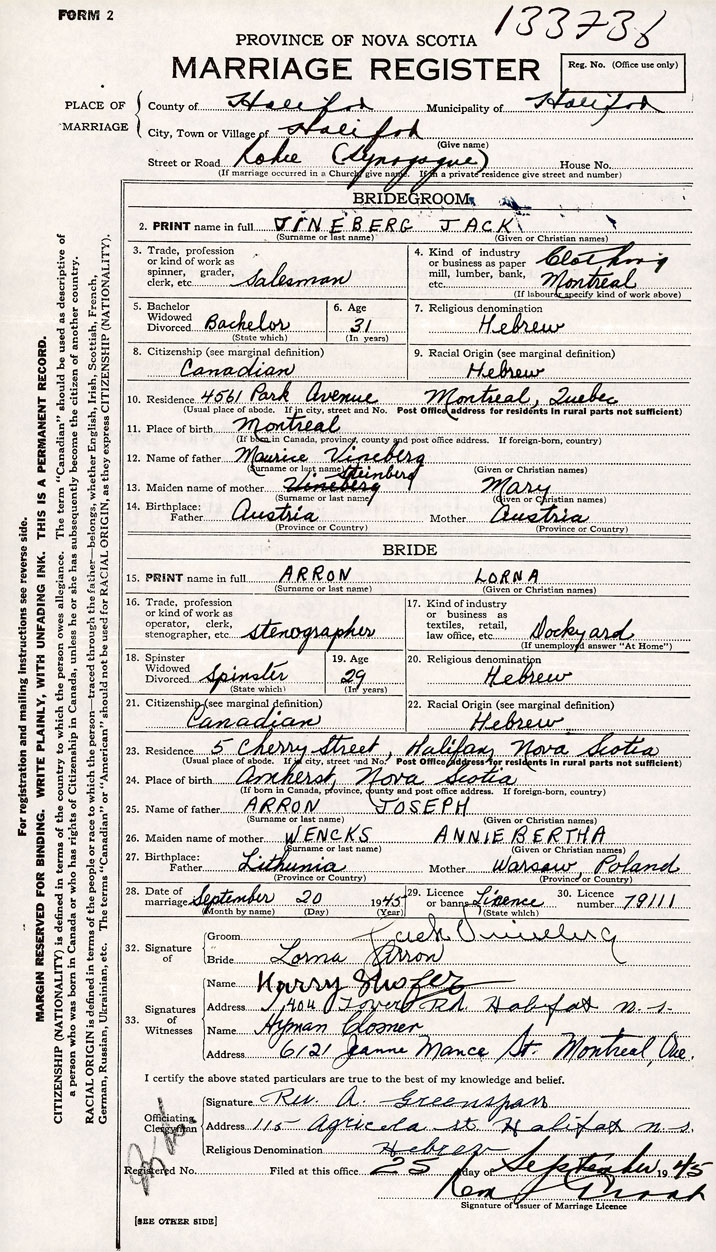 FORM 2
133736
PROVINCE OF NOVA SCOTIA
MARRIAGE REGISTER
Reg. No. (Office use only)
PLACE OF MARRIAGE
County of Halifax Municipality of Halifax
City, Town or Village of Halifax
(Give name)
Street or Road Robie (Synagogue) House No.
(If marriage occurred in a Church give name. If in a private residence give street and number)
BRIDEGROOM
2. PRINT name in full VINEBERG JACK
(Surname or last name) (Given or Christian names)
3. Trade, profession or kind of work as spinner, grader, clerk, etc. Salesman
4. Kind of industry or business as paper mill, lumber, bank, etc. Clothing Montreal
(If labourer specify kind of work above)
5. Bachelor Widowed Divorced Bachelor
(State which)
6. Age 31
(In years)
7. Religious denomination Hebrew
8. Citizenship (see marginal definition) Canadian
9. Racial Origin (see marginal definition) Hebrew
10. Residence 4561 Park Avenue Montreal, Quebec
(Usual place of abode. If in city, street and No. Post Office address for residents in rural parts not sufficient)
11. Place of birth Montreal
(If born in Canada, province, county and post office address. If foreign-born, country)
12. Name of father Maurice Vineberg
(Surname or last name) (Given or Christian names)
Steinberg
13. Maiden name of mother Vineberg Mary
(Surname or last name) (Given or Christian names)
14. Birthplace: Father Austria Mother Austria
(Province or Country) (Province or Country)
BRIDE
15. PRINT name in full ARRON LORNA
(Surname or last name) (Given or Christian names)
16. Trade, profession or kind of work as operator, clerk, stenographer, etc. stenographer
17. Kind of industry or business as textiles, retail, law office, etc. Dockyard
(If unemployed answer "At Home")
18. Spinster Widowed Divorced Spinster
(State which)
19. Age 29
(In years)
20. Religious denomination Hebrew
21. Citizenship (see marginal definition) Canadian
22. Racial Origin (see marginal definition) Hebrew
23. Residence 5 Cherry Street, Halifax, Nova Scotia
(Usual place of abode. If in city, street and No. Post Office address for residents in rural parts not sufficient)
24. Place of birth Amherst, Nova Scotia
(If born in Canada, province, county and post office address. If foreign-born, country)
25. Name of father ARRON JOSEPH
(Surname or last name) (Given or Christian names)
26. Maiden name of mother WENCKS ANNIE BERTHA
(Surname or last name) (Given or Christian names)
27. Birthplace: Father Lithunia Mother Warsaw Poland
(Province or Country) (Province or Country)
28. Date of marriage September 20 1945
(Month by name) (Day) (Year)
29. Licence or banns Licence
(State which)
30. Licence number 79111
32. Signature of
Groom Jack Vineberg
Bride Lorna Arron
33. Signatures of Witnesses
Name Harry Shofer
Address Rd. Halifax n.s.
Name Hyman
Address 6121 Jeanne Mance St. Montreal, Que.
I certify the above stated particulars are true to the best of my knowledge and belief.
Officiating Clergyman
Signature Rev. A. Greenspan
Address 115 Agricola st. Halifax n.s.
Religious Denomination Hebrew
Registered No. Filed at this office 25 day of September 1945
Signature of Issuer of Marriage Licence
[SEE OTHER SIDE]
For registration and mailing instructions see reverse side.
MARGIN RESERVED FOR BINDING. WRITE PLAINLY, WITH UNFADING INK. THIS IS A PERMANENT RECORD.
CITIZENSHIP (NATIONALITY) is defined in terms of the country to which the person owes allegiance. The term "Canadian" should be used as descriptive of
a person who was born in Canada or who has rights of Citizenship in Canada, unless he or she has subsequently become the citizen of another country.
RACIAL ORIGIN is defined in terms of the people or race to which the person—traced through the father—belongs, whether English, Irish, Scottish, French,
German, Russian, Ukrainian, etc. The terms "Canadian" or "American" should not be used for RACIAL ORIGIN, as they express CITIZENSHIP (NATIONALITY).